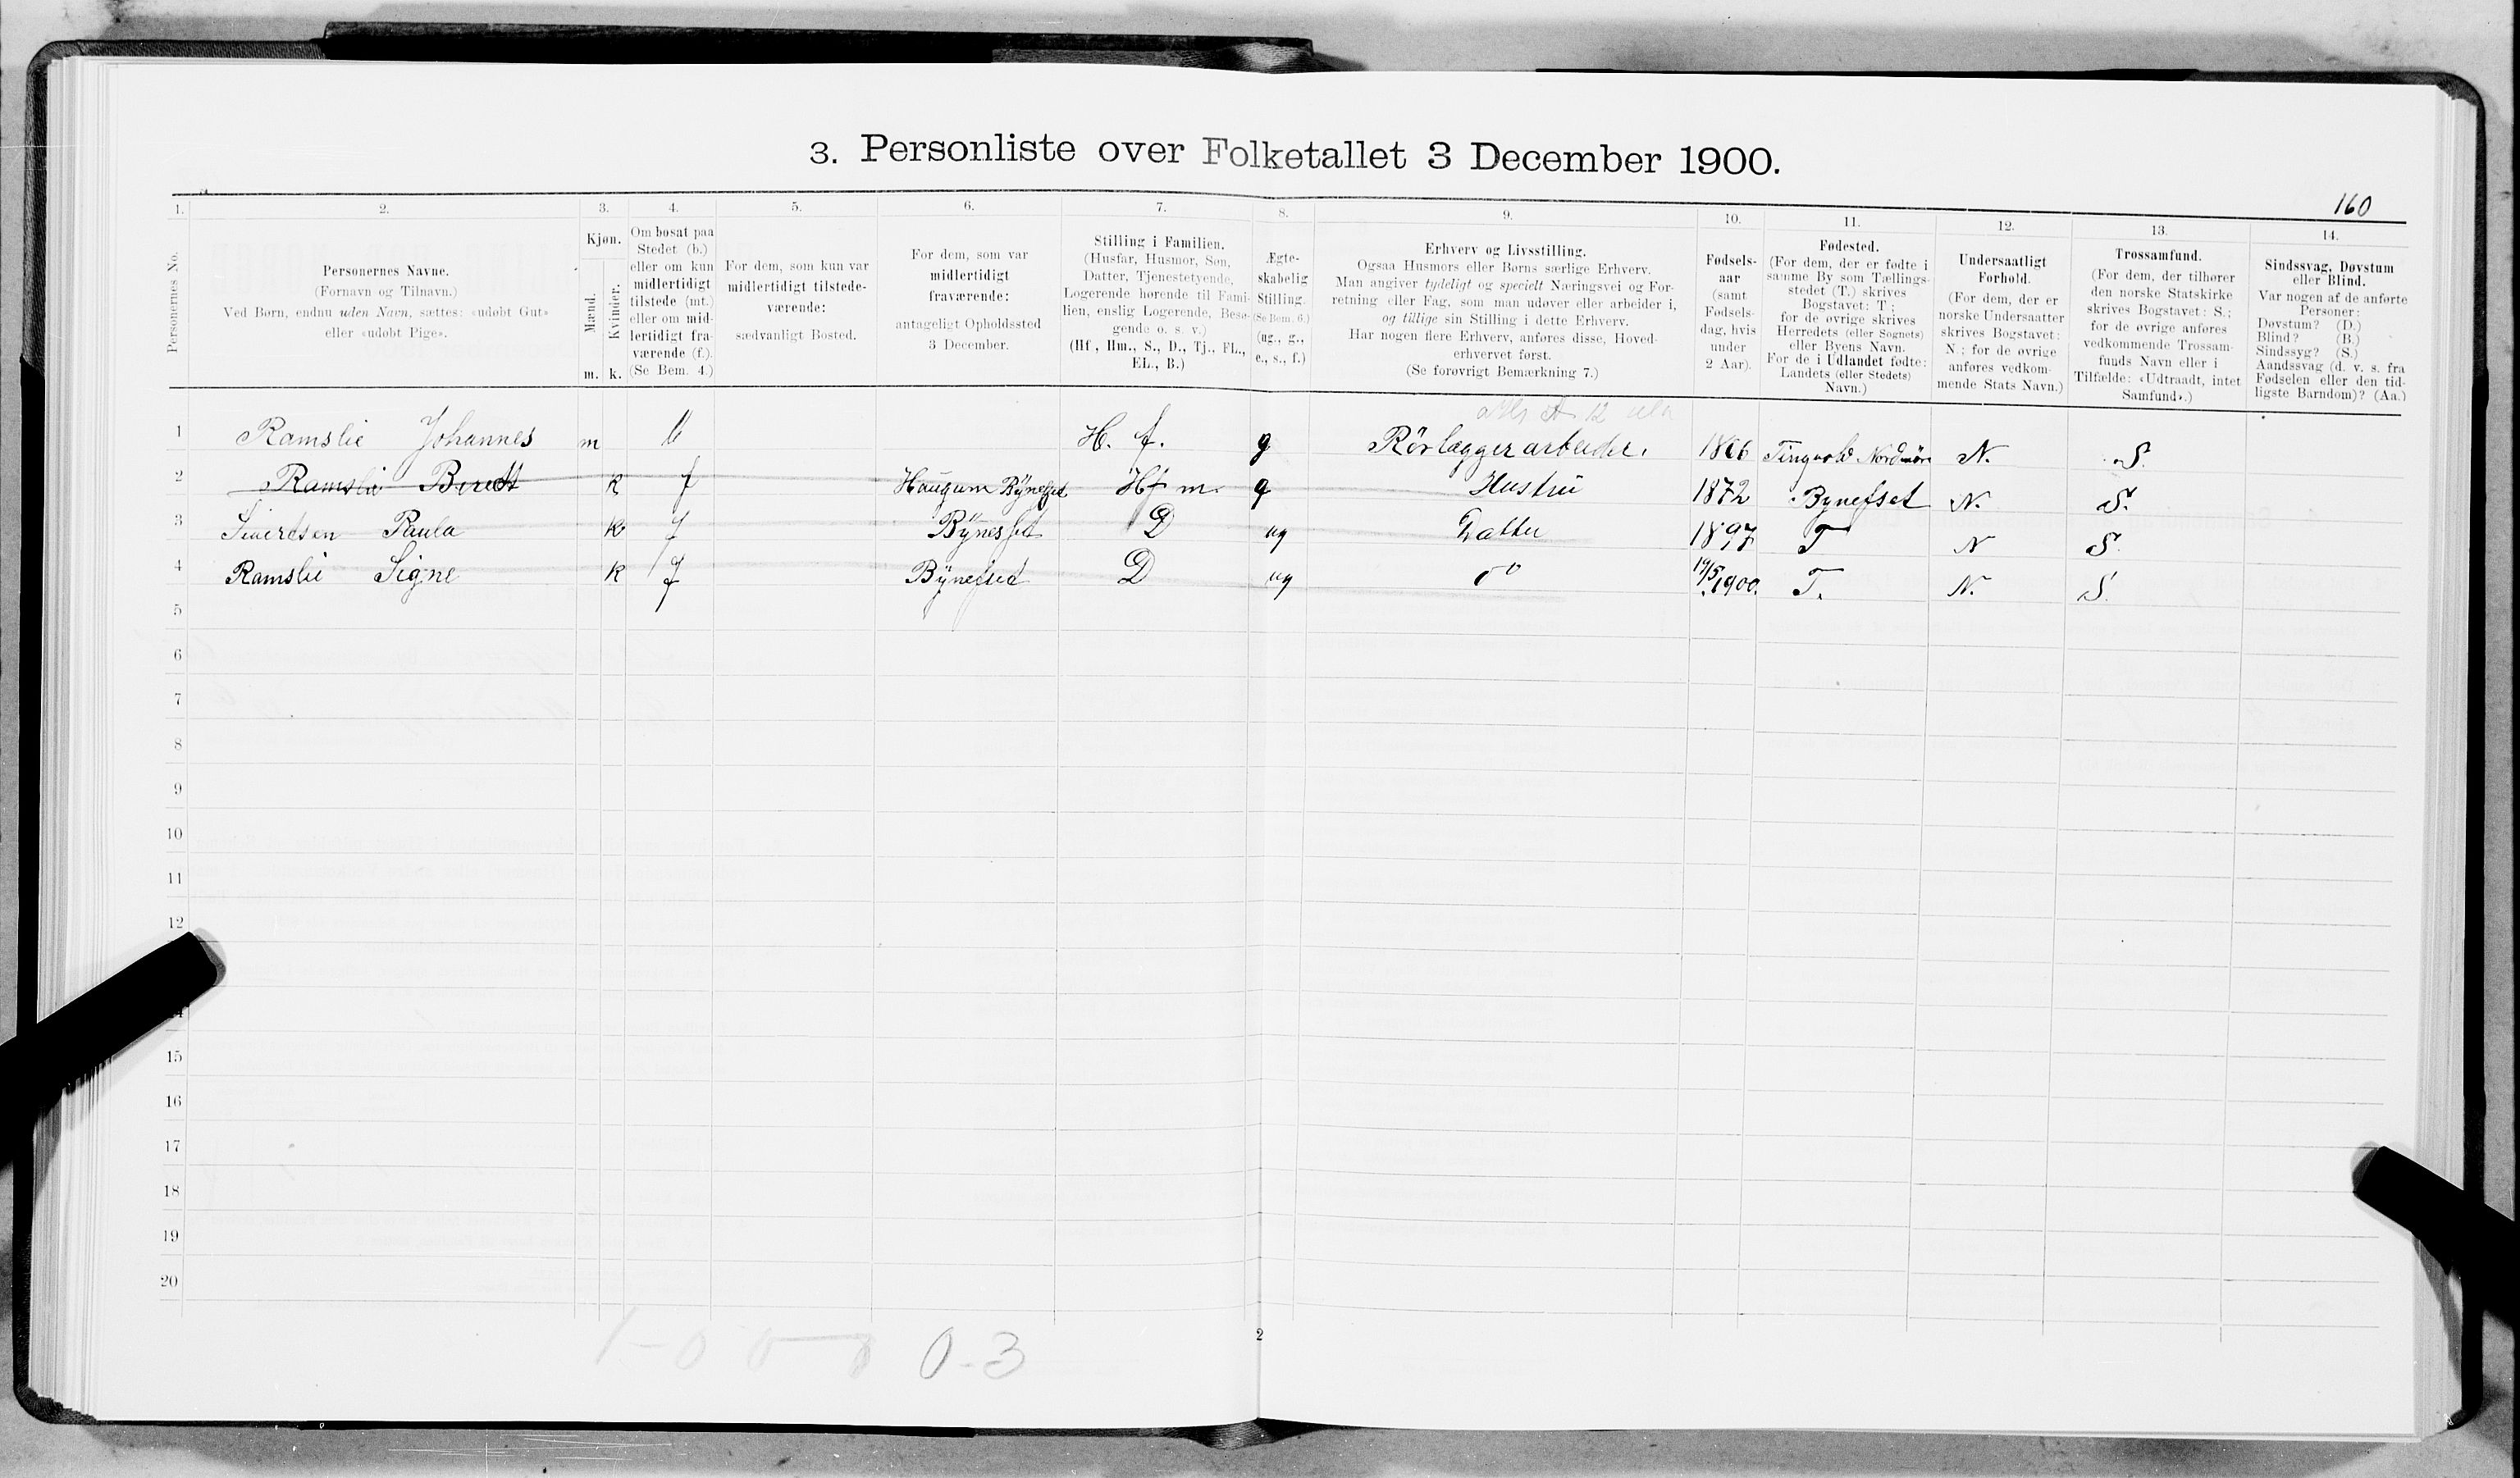 3. Personliste over Folketallet 3 December 1900.
160
1. 2. 3. 4. 5. 6. 7. 8. 9. 10. 11. 12. 13. 14.
Personernes No.
Personernes Navne.
(Fornavn og Tilnavn.)
Ved Børn, endnu uden Navn, sættes: «udøbt Gut»
eller «udøbt Pige».
Kjøn.
Mænd.
Kvinder.
m. k.
Om bosat paa
Stedet (b.)
eller om kun
midlertidigt
tilstede (mt.)
eller om mid-
lertidigt fra-
værende (f.).
(Se Bem. 4.)
For dem, som kun var
midlertidigt tilstede-
værende:
sædvanligt Bosted.
For dem, som var
midlertidigt
fraværende:
antageligt Opholdssted
3 December.
Stilling i Familien.
(Husfar, Husmor, Søn,
Datter, Tjenestetyende,
Logerende hørende til Fami-
lien, enslig Logerende, Besø-
gende o. s. v.)
(Hf., Hm., S., D., Tj., FL.,
EL., B.)
Ægte-
skabelig
Stilling.
(Se Bem. 6.)
(ug., g.,
e., s., f.)
Erhverv og Livsstilling.
Ogsaa Husmors eller Børns særlige Erhverv.
Man angiver tydeligt og specielt Næringsvei og For-
retning eller Fag, som man udøver eller arbeider i,
og tillige sin Stilling i dette Erhverv.
Har nogen flere Erhverv, anføres disse, Hoved-
erhvervet først.
(Se forøvrigt Bemærkning 7.)
Fødsels-
aar
(samt
Fødsels-
dag, hvis
under
2 Aar).
Fødested.
(For dem, der er fødte i
samme By som Tællings-
stedet (T.) skrives
Bogstavet: T;
for de øvrige skrives
Herredets (eller Sognets)
eller Byens Navn.
For de i Udlandet fødte:
Landets (eller Stedets)
Navn.)
Undersaatligt
Forhold.
(For dem, der er
norske Undersaatter
skrives Bogstavet:
N.; for de øvrige
anføres vedkom-
mende Stats Navn.)
Trossamfund.
(For dem, der tilhører
den norske Statskirke
skrives Bogstavet: S.;
for de øvrige anføres
vedkommende Trossam-
funds Navn eller i
Tilfælde: «Udtraadt, intet
Samfund».)
Sindssvag, Døvstum
eller Blind.
Var nogen af de anførte
Personer:
Døvstum? (D.)
Blind? (B.)
Sindssyg? (S.)
Aandssvag (d. v. s. fra
Fødselen eller den tid-
ligste Barndom)? (Aa.)
1 Ramslie Johannes m b H. f. g Rörlæggerarbeider. 1866 Tingvold Nordmör N. S.
2 Ramslie Beret k f Haugum Bynesset Hf m. g Hustru 1872 Bynesset N. S.
3 Siverdsen Paula k f Bynesset D ug Datter 1897 T N S
4 Ramslie Signe k f Bynesset D ug do 19/5 1900. T. N. S.
5
6
7
8
9
10
11
12
15
16
17
18
19
20
0-3
2